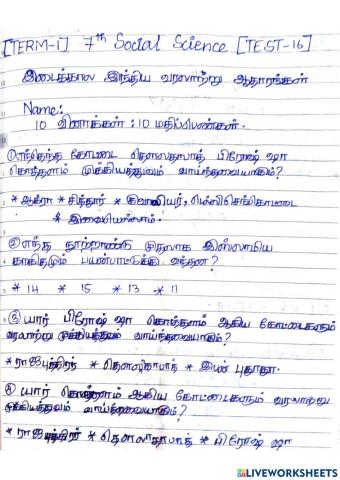 [TERM-I] 7th Social Science [TEST-16]
இடைக்கால இந்திய வரலாற்று ஆதாரங்கள்
Name:
10 வினாக்கள் : 10 மதிப்பெண்கள்.
① எந்தெந்த கோட்டை தௌலதாபாத் பிரோஷ் ஷா
கொத்தளம் முக்கியத்துவம் வாய்ந்தவையாகும்?
* ஆக்ரா * சித்தூர் * குவாலியர், டெல்லி செங்கோட்டை
* இவையெல்லாம்.
② எந்த நூற்றாண்டு முதலாக இஸ்லாமிய
காகிதமும் பயன்பாட்டுக்கு வந்தன?
* 14 * 15 * 13 * 11
③ யார் பிரோஷ் ஷா கொத்தளம் ஆகிய கோட்டைகளும்
வரலாற்று முக்கியத்துவம் வாய்ந்தவையாகும்?
* ராஜபுத்திரர் * தௌலதாபாத் * இபன் பதூதா.
④ யார் கொத்தளம் ஆகிய கோட்டைகளும் வரலாற்று
முக்கியத்துவம் வாய்ந்தவையாகும்?
* ராஜபுத்திரர் * தௌலதாபாத் * பிரோஷ் ஷா
LIVEWORKSHEETS